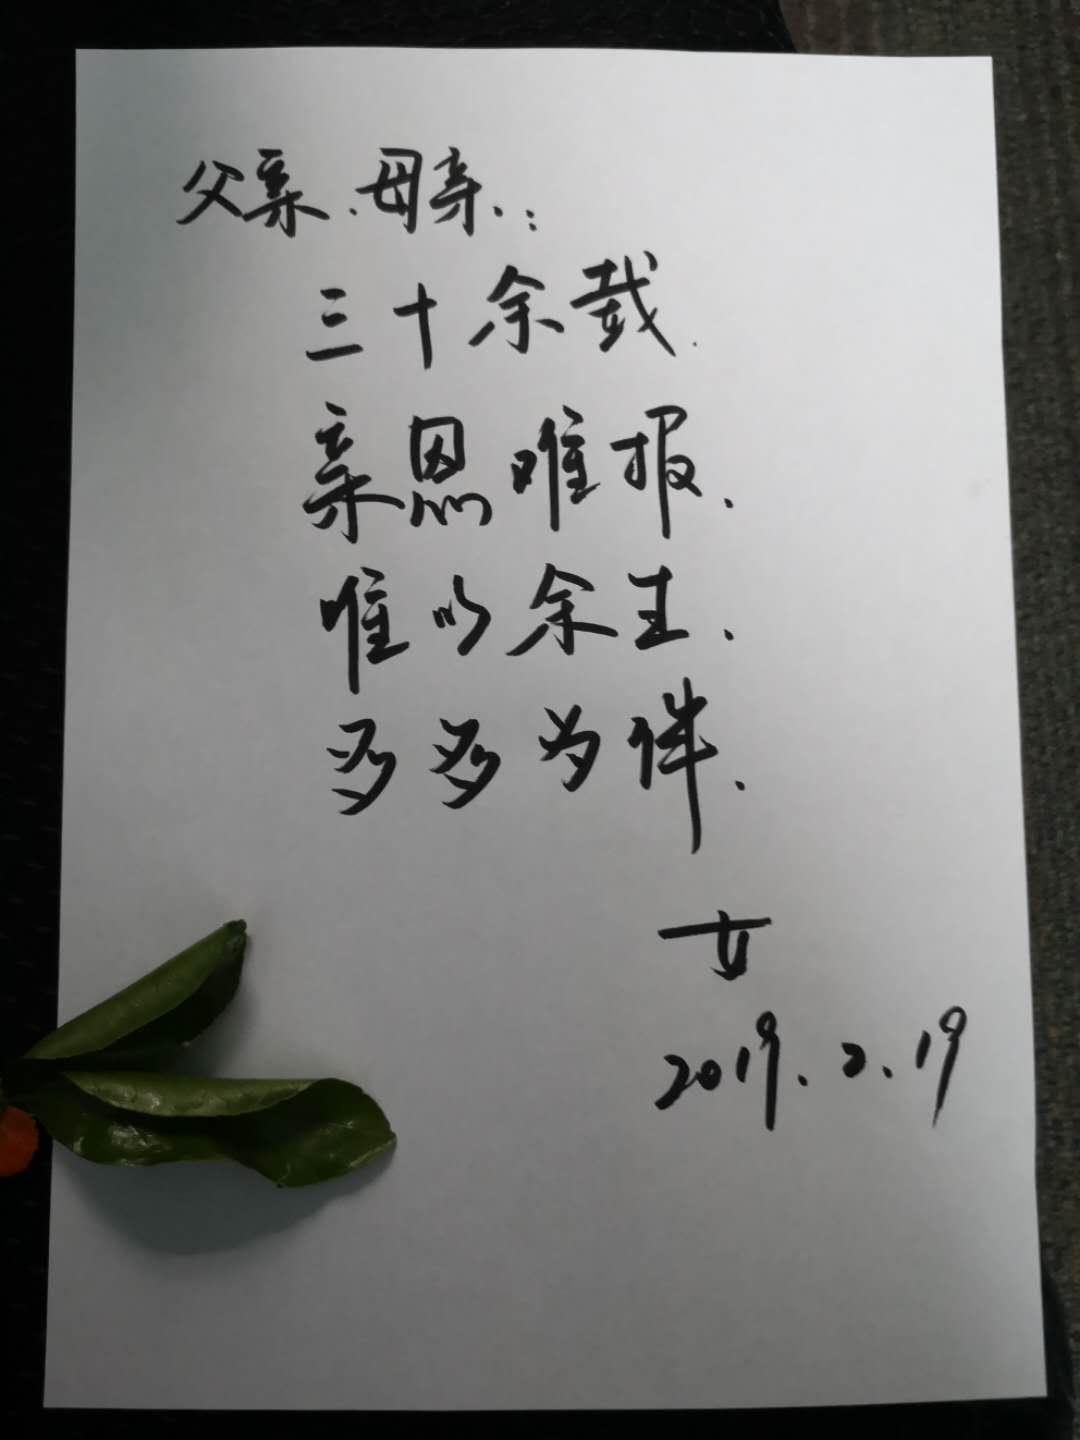 父亲、母亲：
三十余载
亲恩难报、
唯以余生、
多多为伴、
女
2019.2.19